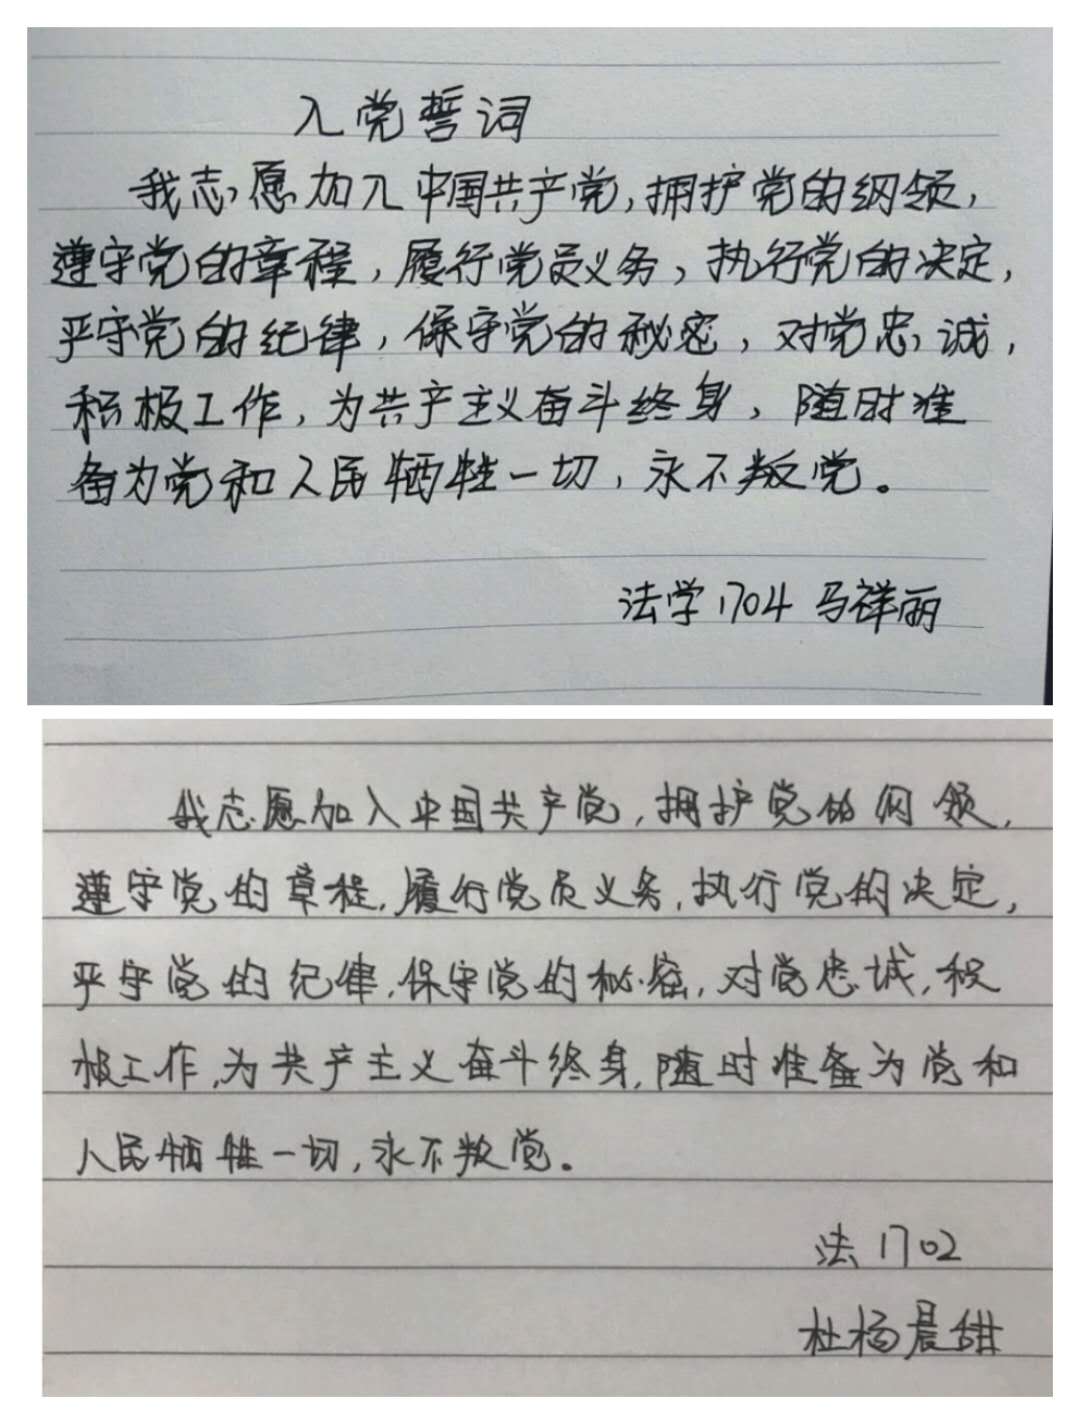 入党誓词
我志愿加入中国共产党,拥护党的纲领,
遵守党的章程,履行党员义务,执行党的决定,
严守党的纪律,保守党的秘密,对党忠诚,
积极工作,为共产主义奋斗终身,随时准
备为党和人民牺牲一切,永不叛党。
法学1704 马祥丽
我志愿加入中国共产党,拥护党的纲领,
遵守党的章程,履行党员义务,执行党的决定,
严守党的纪律,保守党的秘密,对党忠诚,积
极工作,为共产主义奋斗终身,随时准备为党和
人民牺牲一切,永不叛党。
法1702
杜杨晨甜